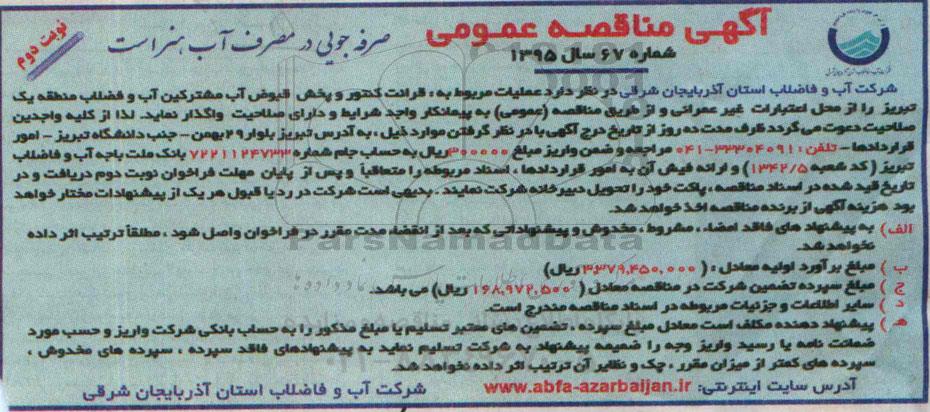 آگهی مناقصه عمومی
شماره ۶۷ سال ۱۳۹۵
صرفه جویی در مصرف آب هنر است
نوبت دوم
شرکت آب و فاضلاب استان آذربایجان شرقی در نظر دارد عملیات مربوط به ، قرائت کنتور و پخش قبوض آب مشترکین آب و فضلاب منطقه یک
تبریز را از محل اعتبارات غیر عمرانی و از طریق مناقصه (عمومی) به پیمانکار واجد شرایط و دارای صلاحیت واگذار نماید. لذا از کلیه واجدین
صلاحیت دعوت می گردد ظرف مدت ده روز از تاریخ درج آگهی با در نظر گرفتن موارد ذیل ، به آدرس تبریز بلوار ۲۹ بهمن - جنب دانشگاه تبریز - امور
قراردادها - تلفن: ۳۳۳۰۴۰۹۱-۰۴۱ مراجعه و ضمن واریز مبلغ ۳۰۰۰۰۰ ریال به حساب جام شماره ۷۲۲۱۱۲۴۷۳۳ بانک ملت باجه آب و فاضلاب
تبریز ( کد شعبه ۱۳۴۲/۵) و ارائه فیش آن به امور قراردادها ، اسناد مربوطه را متعاقباً و پس از پایان مهلت فراخوان نوبت دوم دریافت و در
تاریخ قید شده در اسناد مناقصه ، پاکت خود را تحویل دبیرخانه شرکت نمایند . بدیهی است شرکت در رد یا قبول هر یک از پیشنهادات مختار خواهد
بود هزینه آگهی از برنده مناقصه اخذ خواهد شد.
الف) به پیشنهاد های فاقد امضاء ، مشروط ، مخدوش و پیشنهاداتی که بعد از انقضاء مدت مقرر در فراخوان واصل شود ، مطلقاً ترتیب اثر داده
نخواهد شد.
ب ) مبلغ برآورد اولیه معادل : ( ۳,۳۷۹,۴۵۰,۰۰۰ ریال)
ج ) مبلغ سپرده تضمین شرکت در مناقصه معادل ( ۱۶۸,۹۷۲,۵۰۰ ریال) می باشد.
د ) سایر اطلاعات و جزئیات مربوطه در اسناد مناقصه مندرج است.
هـ ) پیشنهاد دهنده مکلف است معادل مبلغ سپرده ، تضمین های معتبر تسلیم یا مبلغ مذکور را به حساب بانکی شرکت واریز و حسب مورد
ضمانت نامه یا رسید واریز وجه را ضمیمه پیشنهاد به شرکت تسلیم نماید به پیشنهادهای فاقد سپرده ، سپرده های مخدوش ،
سپرده های کمتر از میزان مقرر ، چک و نظایر آن ترتیب اثر داده نخواهد شد.
آدرس سایت اینترنتی: www.abfa-azarbaijan.ir
شرکت آب و فاضلاب استان آذربایجان شرقی
ParsNamadData